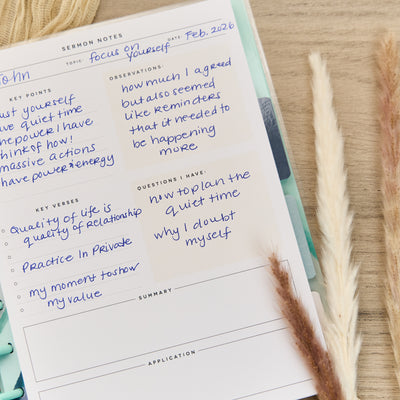 SERMON NOTES
John
TOPIC focus on yourself
DATE Feb. 2026
KEY POINTS
ust yourself
ave quiet time
he power I have
hink of how!
massive actions
have power energy
OBSERVATIONS:
how much I agreed
but also seemed
like reminders
that it needed to
be happening
more
KEY VERSES
Quality of life is
quality of Relationship
Practice In Private
my moment to show
my value
QUESTIONS I HAVE:
how to plan the
quiet time
why I doubt
myself
SUMMARY
APPLICATION